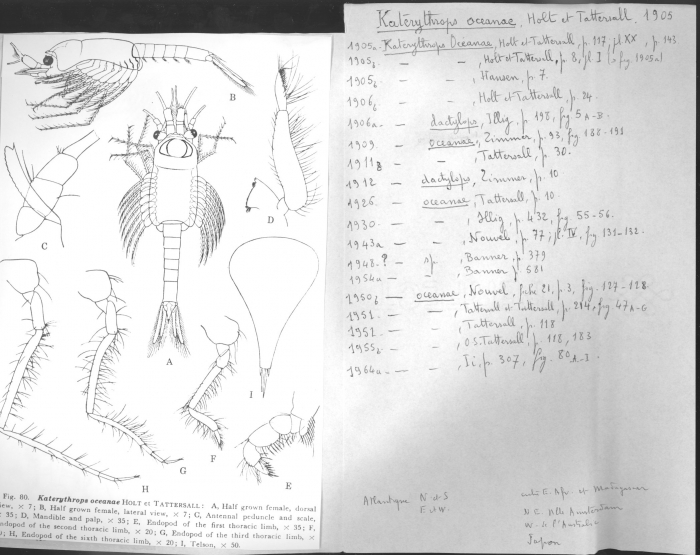 B
C
D
A
I
F
G
H
E
Fig. 80. Katerythrops oceanae HOLT et TATTERSALL: A, Half grown female, dorsal
view, × 7; B, Half grown female, lateral view, × 7; C, Antennal peduncle and scale,
× 35; D, Mandible and palp, × 35; E, Endopod of the first thoracic limb, × 35; F,
Endopod of the second thoracic limb, × 20; G, Endopod of the third thoracic limb, ×
20; H, Endopod of the sixth thoracic limb, × 20; I, Telson, × 50.
Katerythrops oceanae, Holt et Tattersall, 1905
1905a. Katerythrops Oceanae, Holt et Tattersall, p. 117, pl XX, p. 143
1905b — — , Holt et Tattersall, p. 8, pl. I (= fig 1905a)
1905b — — , Hansen, p. 7.
1906b — — , Holt et Tattersall, p. 24.
1906a — dactylops, Illig, p. 198, fig 5 A-B.
1909 — oceanae, Zimmer, p. 93, fig 188-191
1911 — — , Tattersall, p. 30.
1912 — dactylops, Zimmer, p. 10
1926 — oceanae, Tattersall, p. 10
1930 — — , Illig, p. 432, fig 55-56.
1943a — — , Nouvel, p. 77, pl. IV, fig 131-132.
1948 — ? sp., Banner, p. 379
1954a — Banner p. 581
1950b — oceanae, Nouvel, fiche 21, p. 3, fig. 127-128
1951 — — , Tattersall et Tattersall, p. 214, fig 47 A-G
1951 — — , Tattersall, p. 118
1955b — — , O.S. Tattersall, p. 118, 183
1964a — — , Ii, p. 307, fig. 80 A-I.
Atlantique N et S
E et W.
entre E. Afr. et Madagascar
N E Ile Amsterdam
W. de l'Australie
Japon